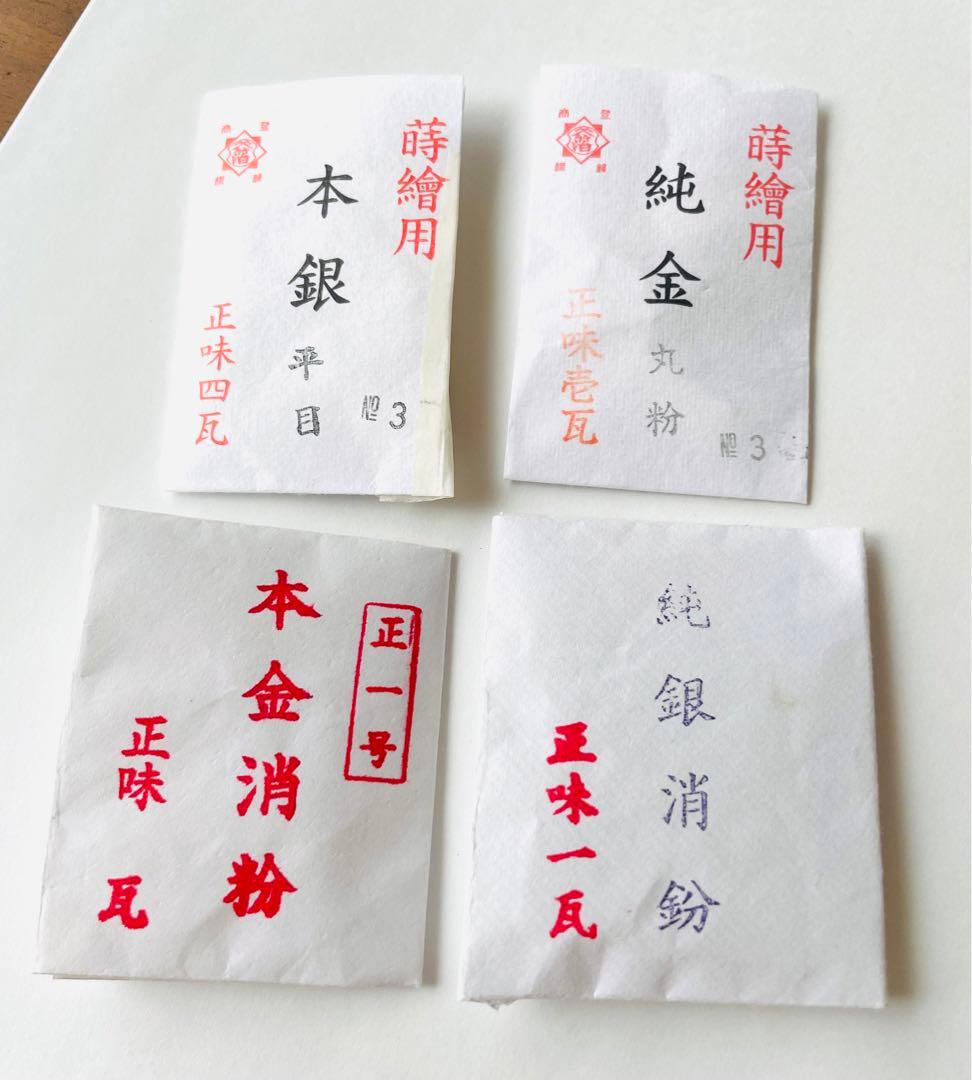 蒔繪用
本銀平目
№3
正味四瓦
登商
蒔繪用
純金丸粉
№3
正味壱瓦
登商
正一号
本金消粉
正味 瓦
純銀消鈖
正味一瓦